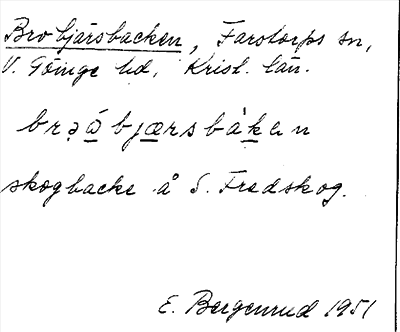 Brobjärsbacken, Farstorps sn,
V. Göinge hd, Krist. län.
brəá̱bjæ̱rsbàḵen
skogbacke å S. Fredskog.
E. Bergenrud 1951